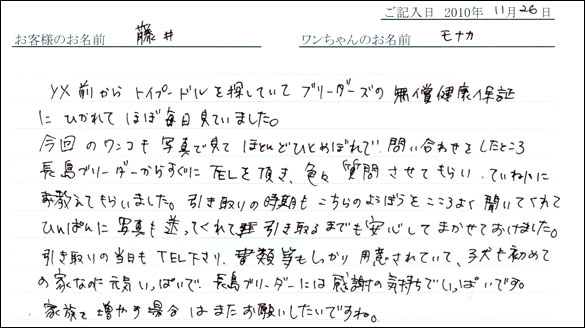 ご記入日 2010年 11月26日
お客様のお名前 藤井 ワンちゃんのお名前 モナカ
以前から トイプードルを探していて ブリーダーズの 無償健康保証
に ひかれて ほぼ毎日見ていました。
今回のワンコも 写真で見て ほとんどひとめぼれで 問い合わせをしたところ
長島ブリーダーからすぐに TELを頂き、色々 質問 させてもらい、ていねいに
お教えてもらいました。引き取りの時期も こちらのようぼうを こころよく 聞いてくれて
ひんぱんに 写真も 送ってくれて 引き取るまでも 安心して まかせておけました。
引き取りの当日も TEL下さり、書類等もしっかり 用意されていて、子犬も初めて
の家なのに 元気いっぱいで、長島ブリーダーには 感謝の気持ちでいっぱいです。
家族を 増やす場合は またお願いしたいですね。